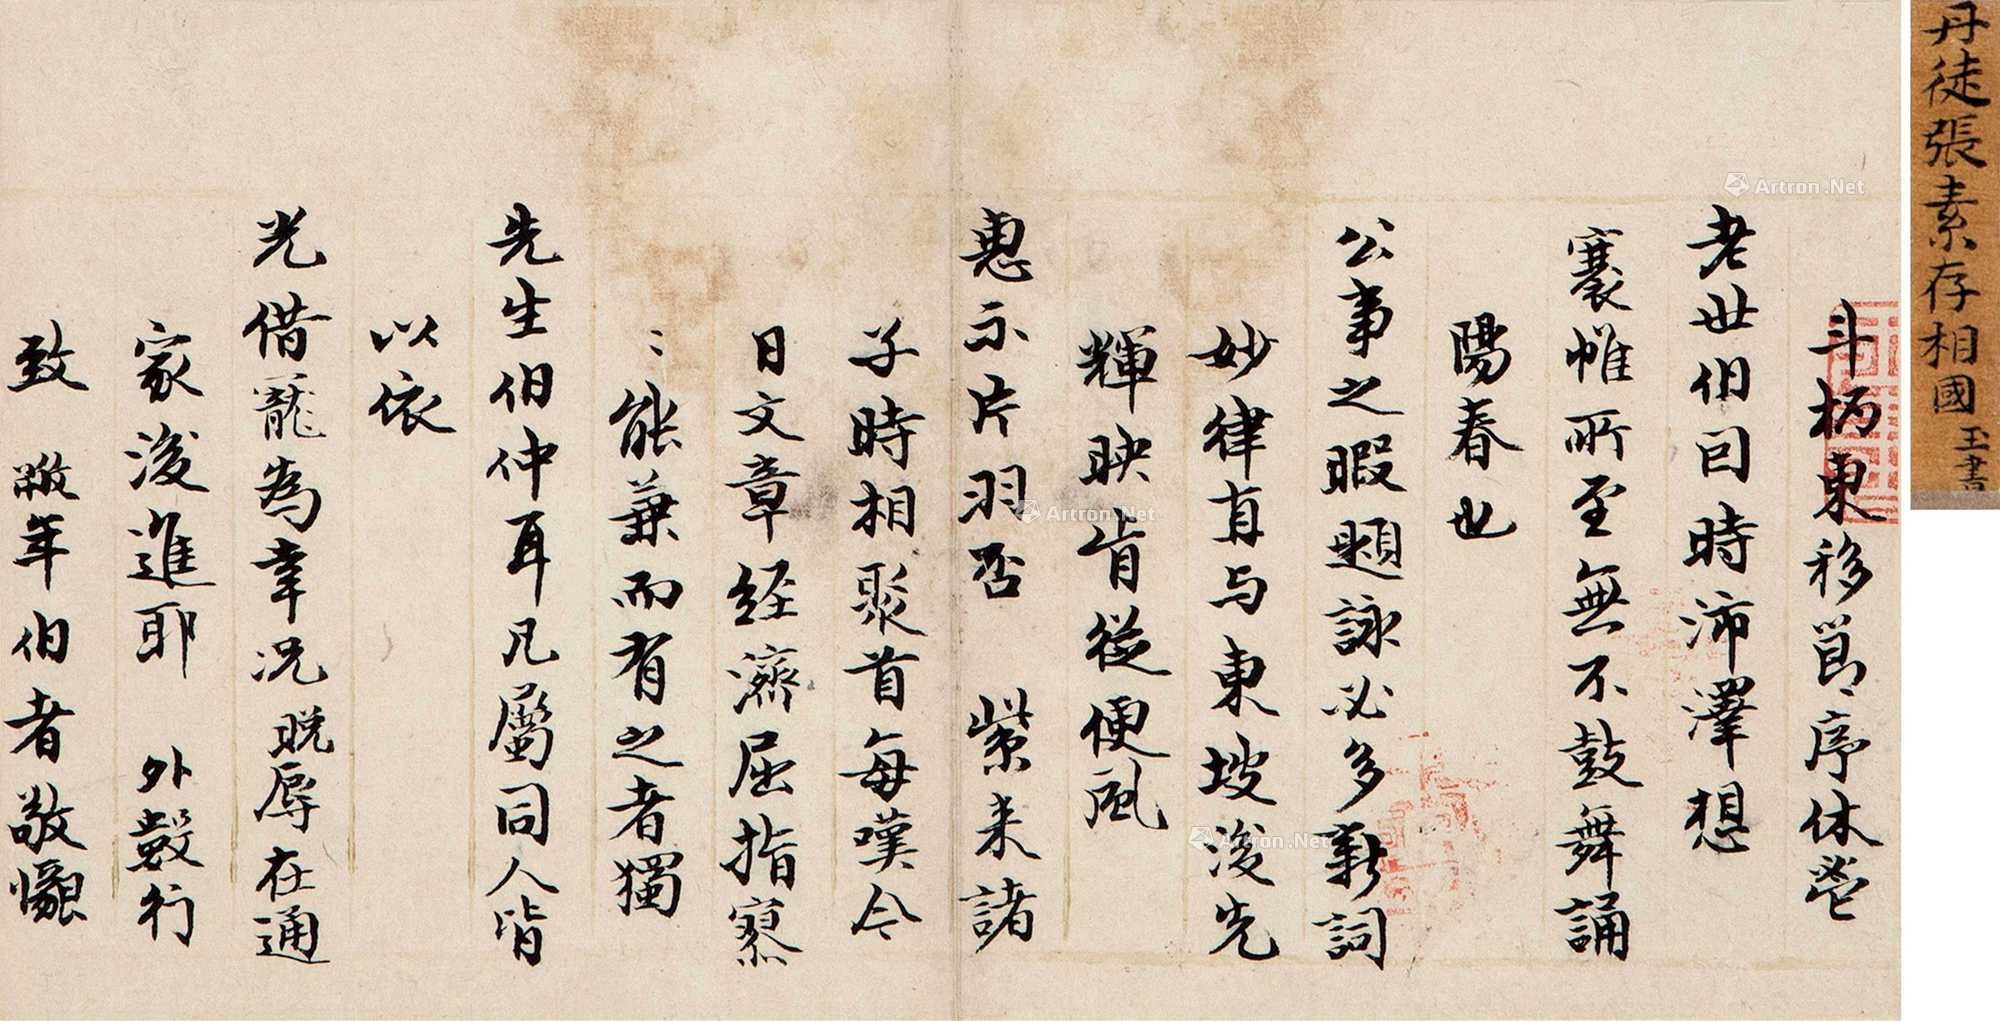 丹徒張素存相國玉書
斗柄東移節序休鬯
老世伯因時沛澤想
褰帷所至無不鼓舞誦
陽春也
公事之暇題詠必多新詞
妙律直与東坡後先
輝映肯從便風
惠示片羽否 紫来諸
子時相聚首每嘆今
日文章經濟屈指寥
〻能兼而有之者獨
先生伯仲耳凡屬同人皆
以依
光借寵為幸况晩辱在通
家後進耶 外穀行
致 敝年伯者敬懇
Artron.Net
Artron.Net
Artron.Net